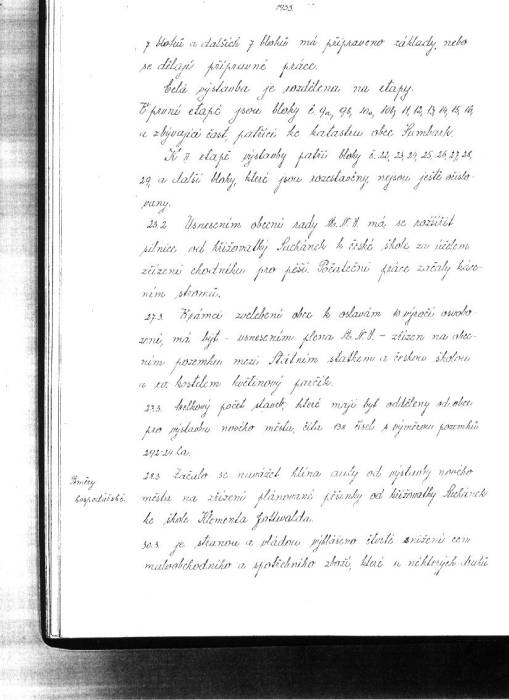 1955.
7 bloků a dalších 7 bloků má připraveno základy, nebo
se dělají přípravné práce.
Celá výstavba je rozdělena na etapy.
V první etapě jsou bloky č. 9a, 9b, 10a, 10b, 11, 12, 13, 14, 15, 16,
a zbývající část, patřící ke katastru obce Šumbark.
K II etapě výstavby patří bloky č. 22, 23, 24, 25, 26, 27, 28,
29, a další bloky, které jsou rozestavěny, nejsou ještě číslo-
vány.
23.2. Usnesením obecní rady M.N.V. má se rozšířit
silnice od křižovatky Suchánek k české škole za účelem
zřízení chodníku pro pěší. Počáteční práce začaly káce-
ním stromů.
27.3. V rámci zvelebení obce k oslavám 10 výročí osvobo-
zení, má být - usnesením plena M.N.V. - zřízen na obec-
ním pozemku mezi Státním statkem a českou školou
a ev. kostelem květinový parčík.
27.3. Celkový počet staveb, které mají být odděleny od obce
pro výstavbu nového města, čítá 138 čísel s výměrou pozemků
292.24 ha.
Poměry
hospodářské.
28.3. Začalo se navážet hlína auty od výstavby nového
města na zřízení plánované pěšinky od křižovatky Suchánek
ke škole Klementa Gottwalda.
30.3. je stranou a vládou vyhlášeno čtvrté snížení cen
maloobchodního a spotřebního zboží, které u některých druhů